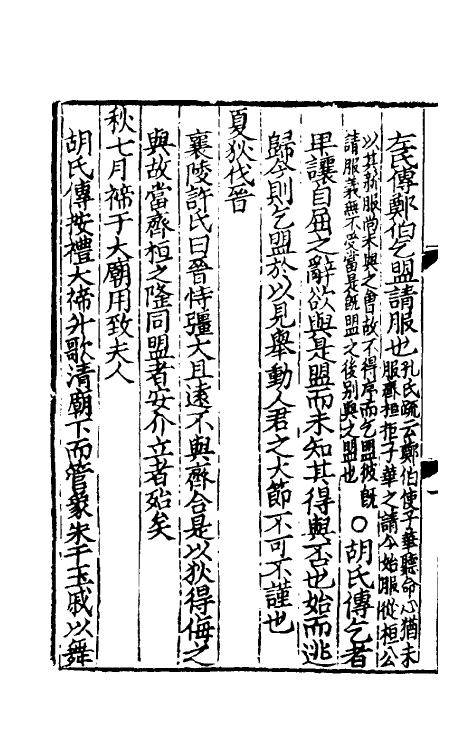 左氏傳鄭伯乞盟請服也孔氏疏云鄭伯使子華聽命心猶未
服齊桓拒子華之請今始服從桓公
以其新服尚未與之會故不得序而乞盟彼旣
請服義無不受當是旣盟之後别與之盟也〇胡氏傳乞者
卑讓自屈之辭欲與是盟而未知其得與否也始而逃
歸今則乞盟於以見舉動人君之大節不可不謹也
夏狄伐晉
襄陵許氏曰晉恃彊大且遠不與齊合是以狄得侮之
與故當齊桓之隆同盟者安介立者殆矣
秋七月禘于大廟用致夫人
胡氏傳按禮大禘升歌清廟下而管象朱干玉戚以舞